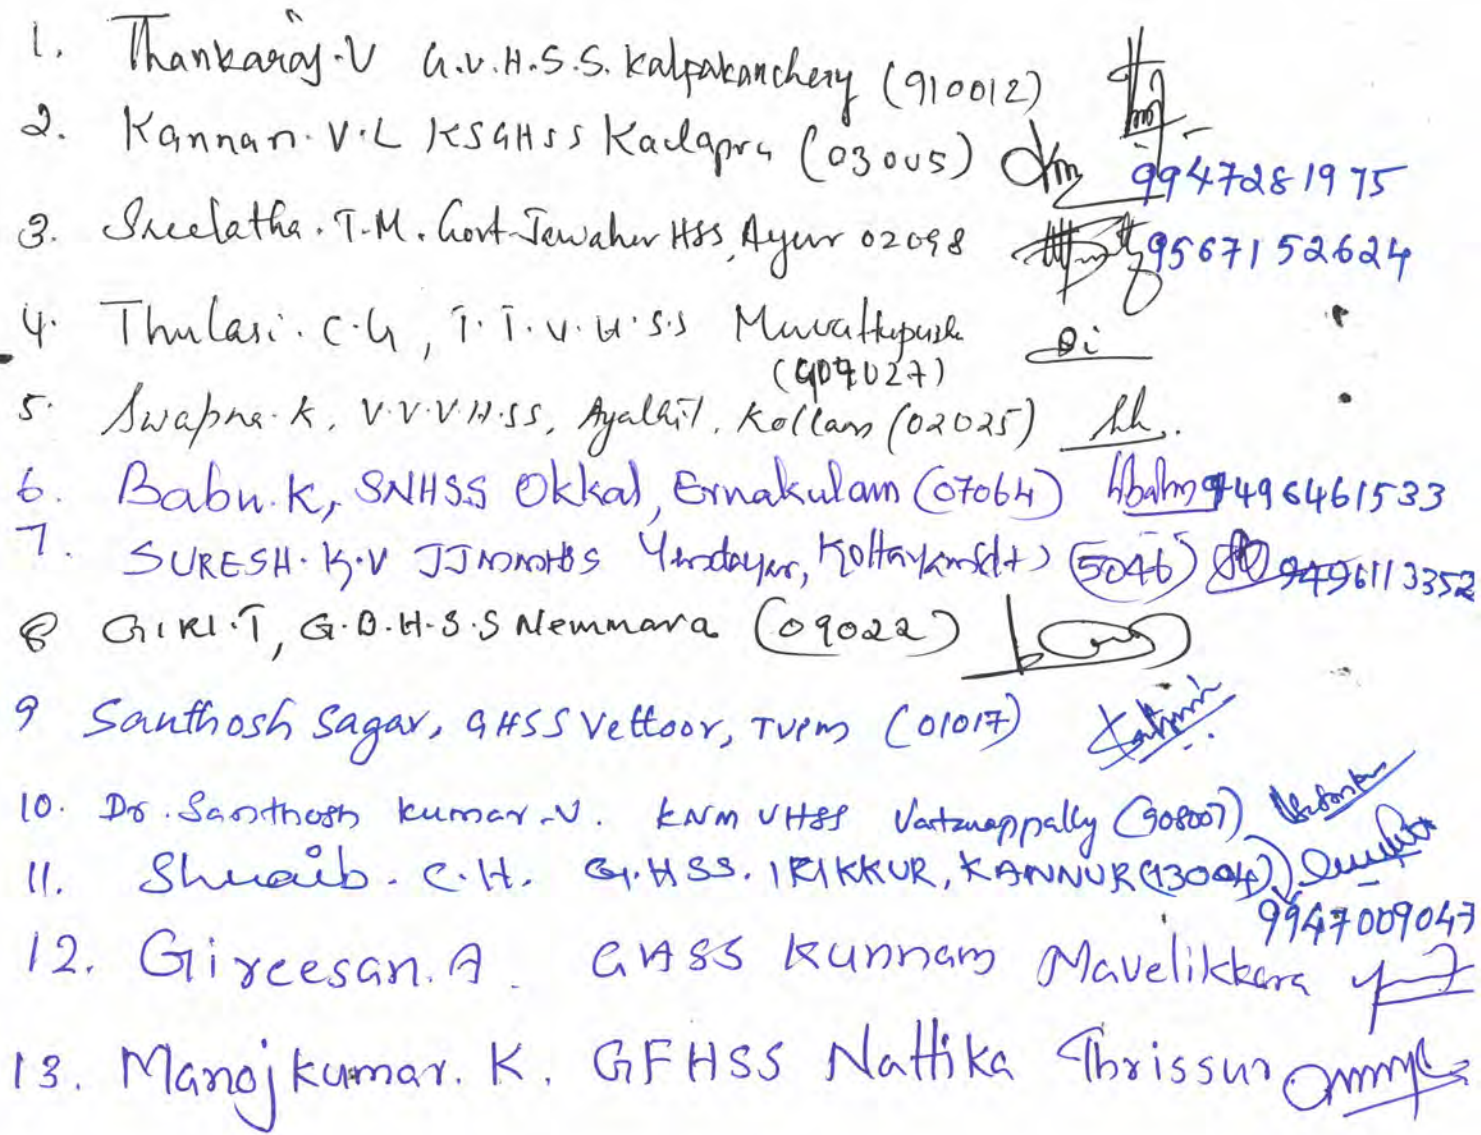 1. Thankaraj.V G.V.H.S.S. Kalpakanchery (910012)
2. Kannan. V.L KSGHSS Kadapra (03005)
9947281975
3. Sreelatha. T.M. Govt Jawahar HSS, Ayur 02098
9567152624
4. Thulasi. C.G, T.T.V.H.S.S Muvattupuzha
(907027)
5. Swapna. K, V.V.V.H.SS, Ayathil, Kollam (02025)
6. Babu.K, SNHSS Okkal, Ernakulam (07064) 9496461533
7. SURESH. K.V JJMMHSS Yendayar, Kottayam(dt) (5046) 9496113352
8 GIRI.T, G.B.H.S.S Nemmara (09022)
9 Santhosh Sagar, GHSS Vettoor, TVPM (01017)
10. Dr. Santhosh kumar.N. KNM VHSS Vatanappally (908007)
11. Shuaib. C.H. G.HSS. IRIKKUR, KANNUR (13004)
9947009047
12. Gireesan. A. GHSS Kunnam Mavelikkara
13. Manojkumar. K. GFHSS Nattika Thrissur